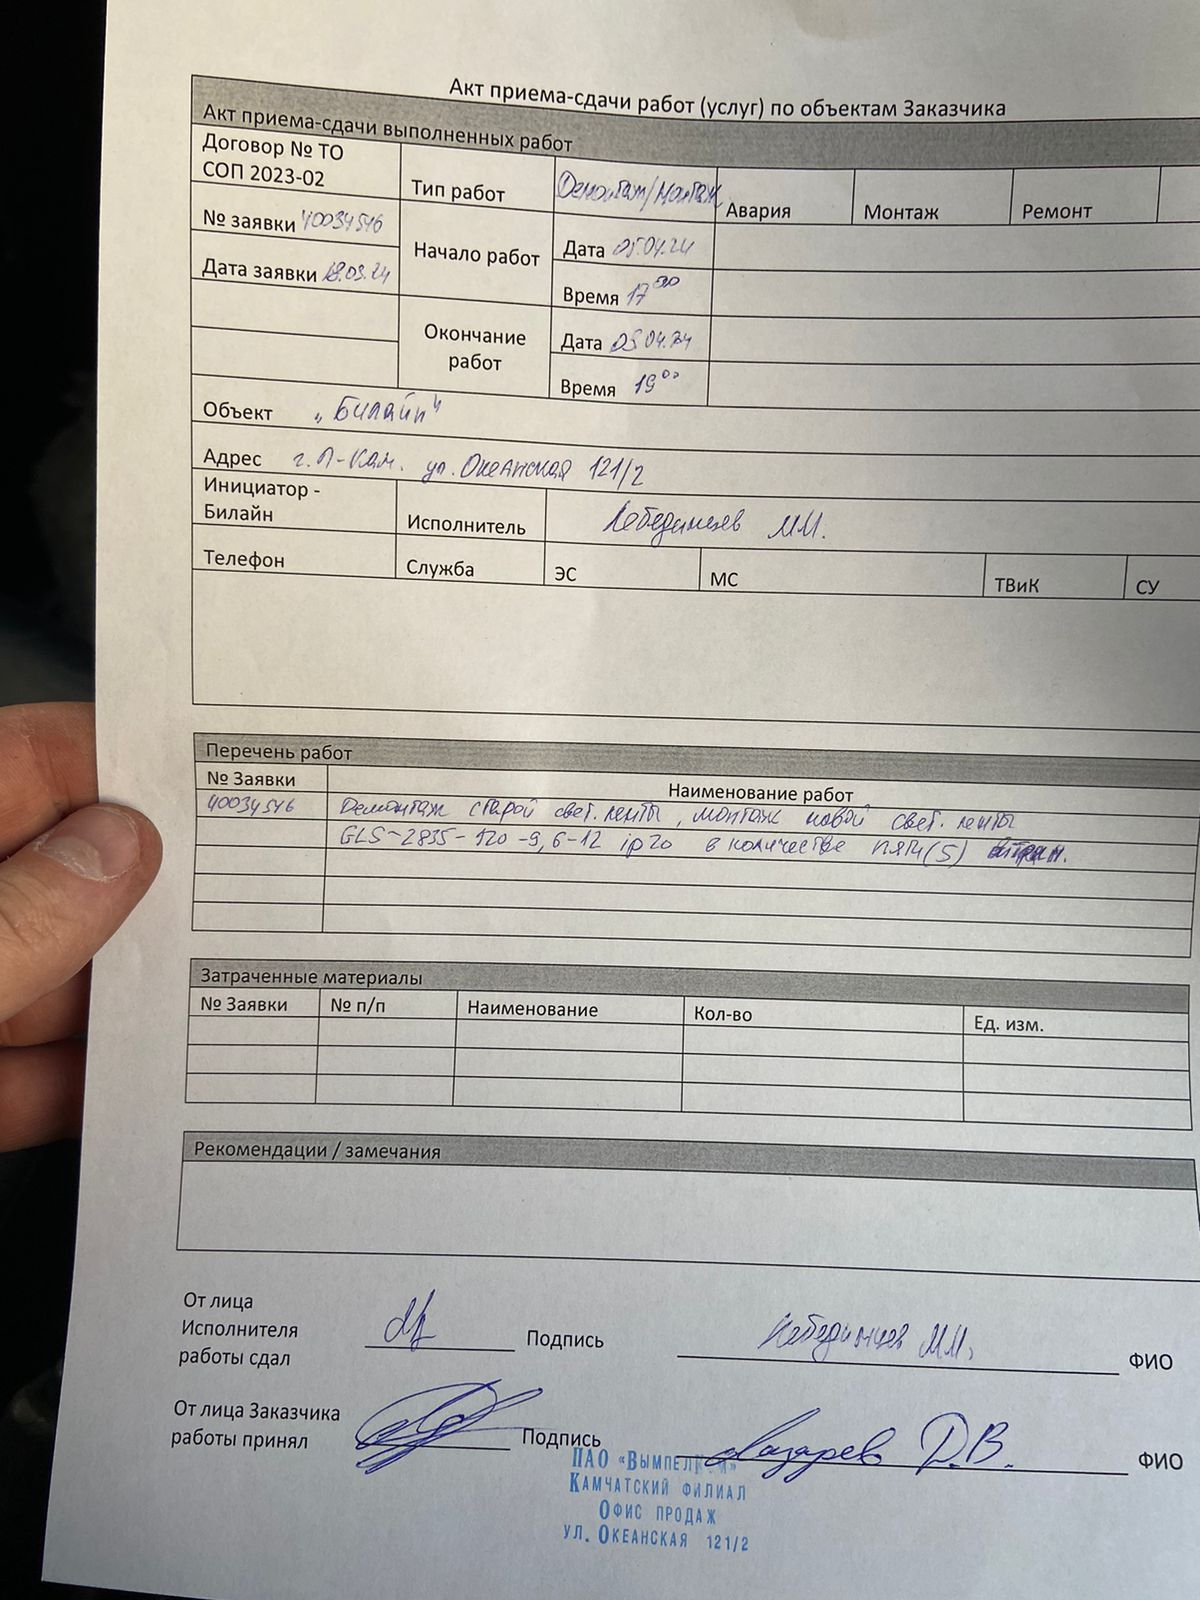 Акт приема-сдачи работ (услуг) по объектам Заказчика
Акт приема-сдачи выполненных работ
Договор № ТО
СОП 2023-02
Тип работ
Демонтаж/монтаж
Авария
Монтаж
Ремонт
№ заявки 40034546
Начало работ
Дата 05.04.24
Дата заявки 18.03.24
Время 17 00
Окончание
работ
Дата 05.04.24
Время 19 00
Объект "Билайн"
Адрес г. П-Кам. ул. Океанская 121/2
Инициатор -
Билайн
Исполнитель
Лебединцев М.М.
Телефон
Служба
ЭС
МС
ТВиК
СУ
Перечень работ
№ Заявки
Наименование работ
40034546
Демонтаж старой свет. ленты, монтаж новой свет. ленты
GLS-2835-120-9,6-12 ip20 в количестве пяти (5)
Затраченные материалы
№ Заявки
№ п/п
Наименование
Кол-во
Ед. изм.
Рекомендации / замечания
От лица
Исполнителя
работы сдал
Подпись
Лебединцев М.М.
ФИО
От лица Заказчика
работы принял
Подпись
Лазарев Д.В.
ФИО
ПАО «Вымпелком»
Камчатский филиал
Офис продаж
ул. Океанская 121/2